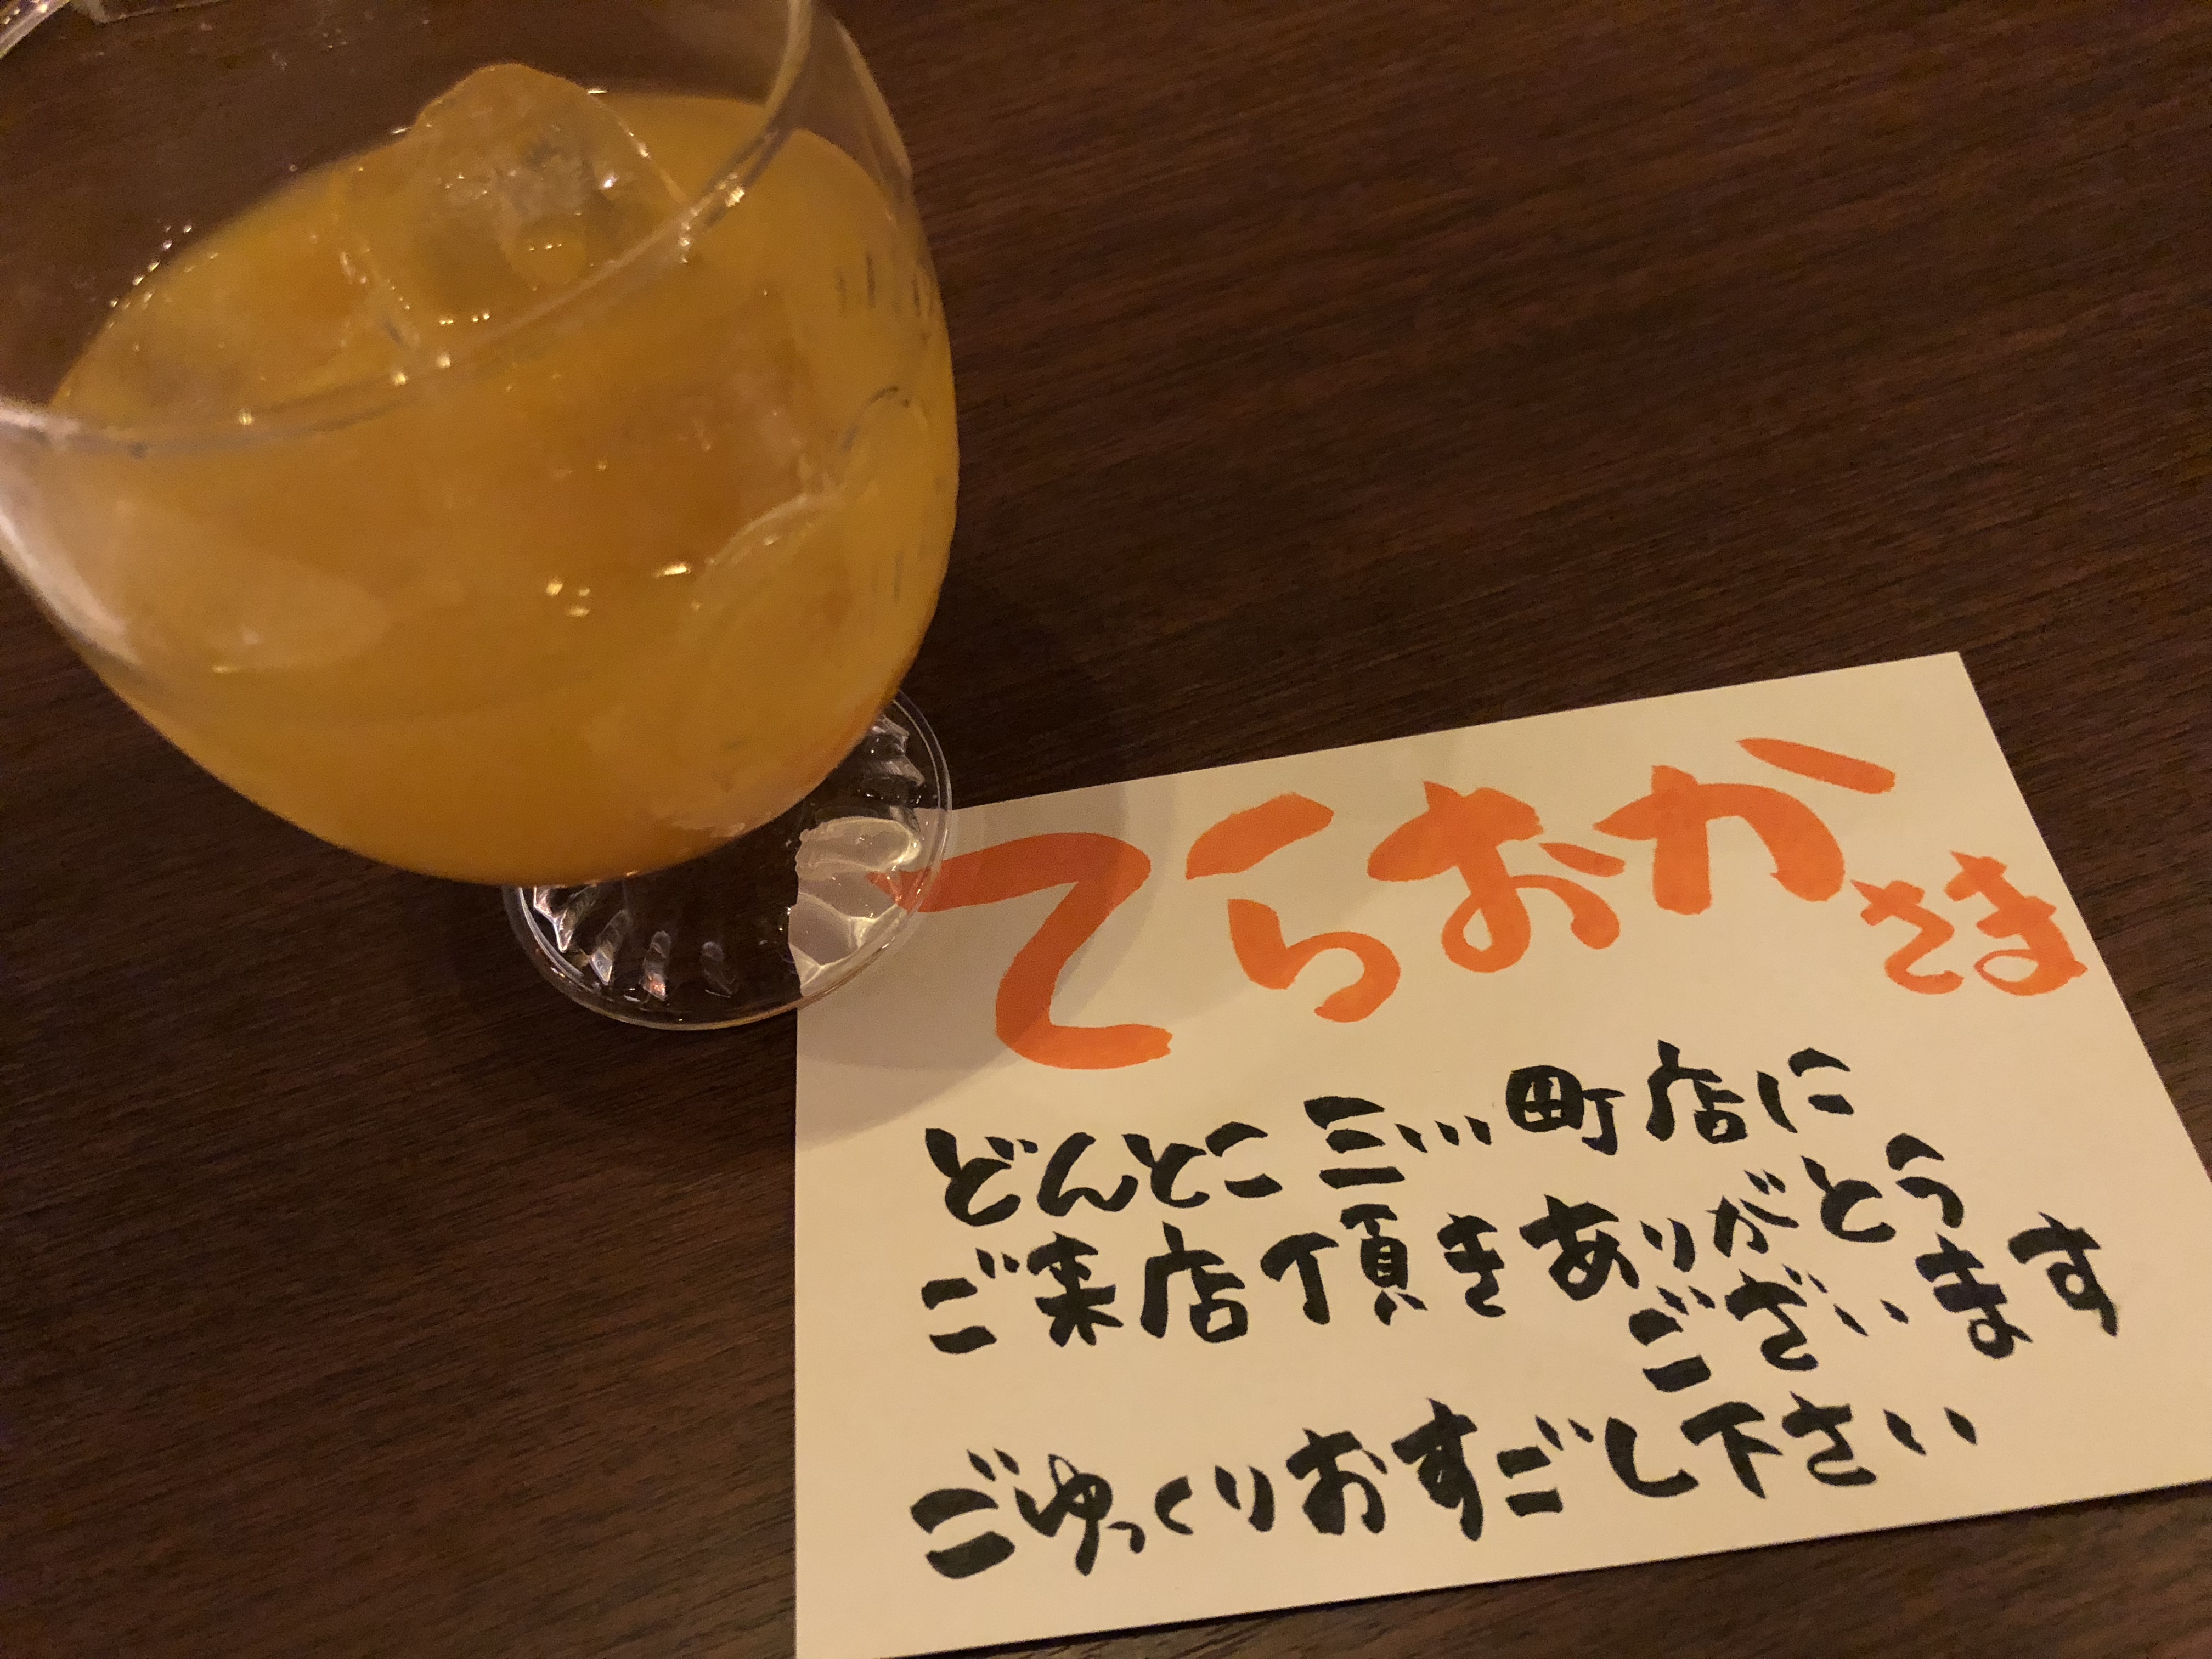 てらおかさま
どんとこ三川町店に
ご来店頂きありがとう
ございます
ごゆっくりおすごし下さい